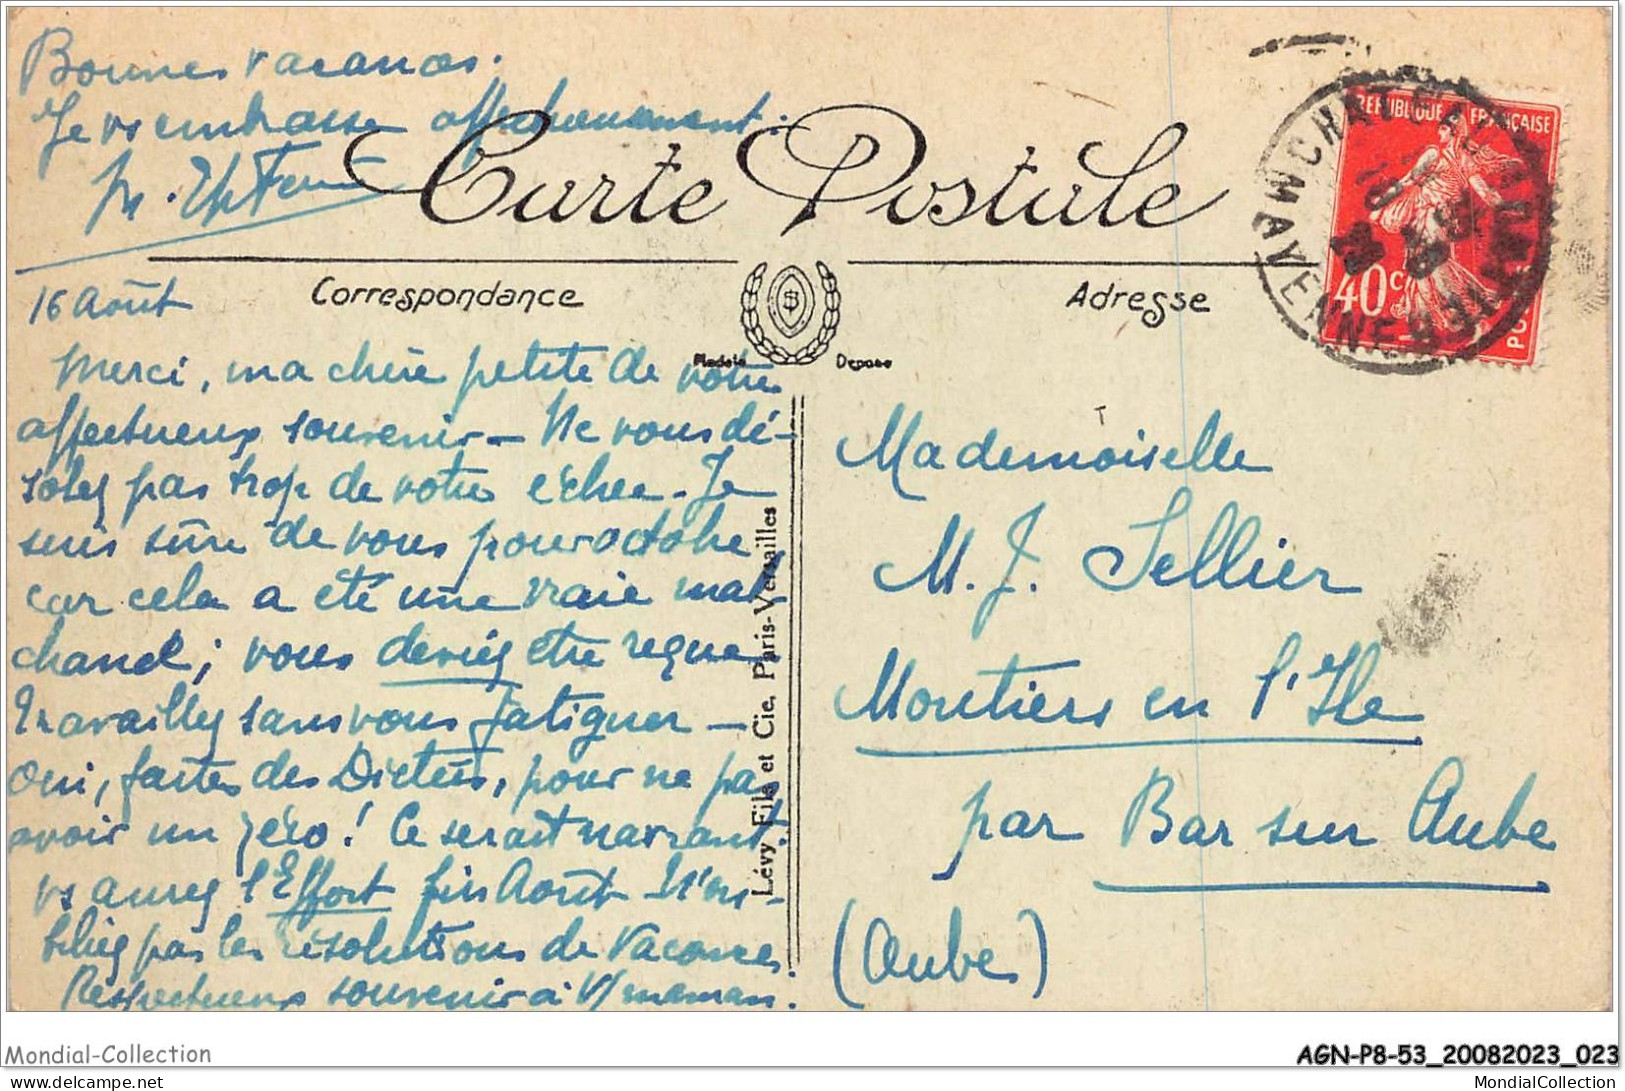 Bonnes vacances.
Je vs embrasse affectueusement.
M.
Carte Postale
Correspondance
Adresse
Modèle Déposé
REPUBLIQUE FRANÇAISE
40c
POSTES
MAYENNE
16 Août
Merci, ma chère petite de votre
affectueux souvenir – Ne vous dé-
solez pas trop de votre échec. Je
suis sûre de vous pour octobre,
car cela a été une vraie mal-
chance ; vous deviez être reçue
Travaillez sans vous fatiguer –
Oui, faites des Dictées, pour ne pas
avoir un zéro ! Ce serait navrant.
vs aurez l'Effort fin Août N'ou-
bliez pas les Résolutions de Vacances
Respectueux souvenir à V/ maman.
Lévy Fils et Cie, Paris-Versailles
Mademoiselle
M. J. Sellier
Moutiers en l'Ile
par Bar sur Aube
(Aube)
Mondial-Collection
AGN-P8-53_20082023_023
delcampe.net
MondialCollection